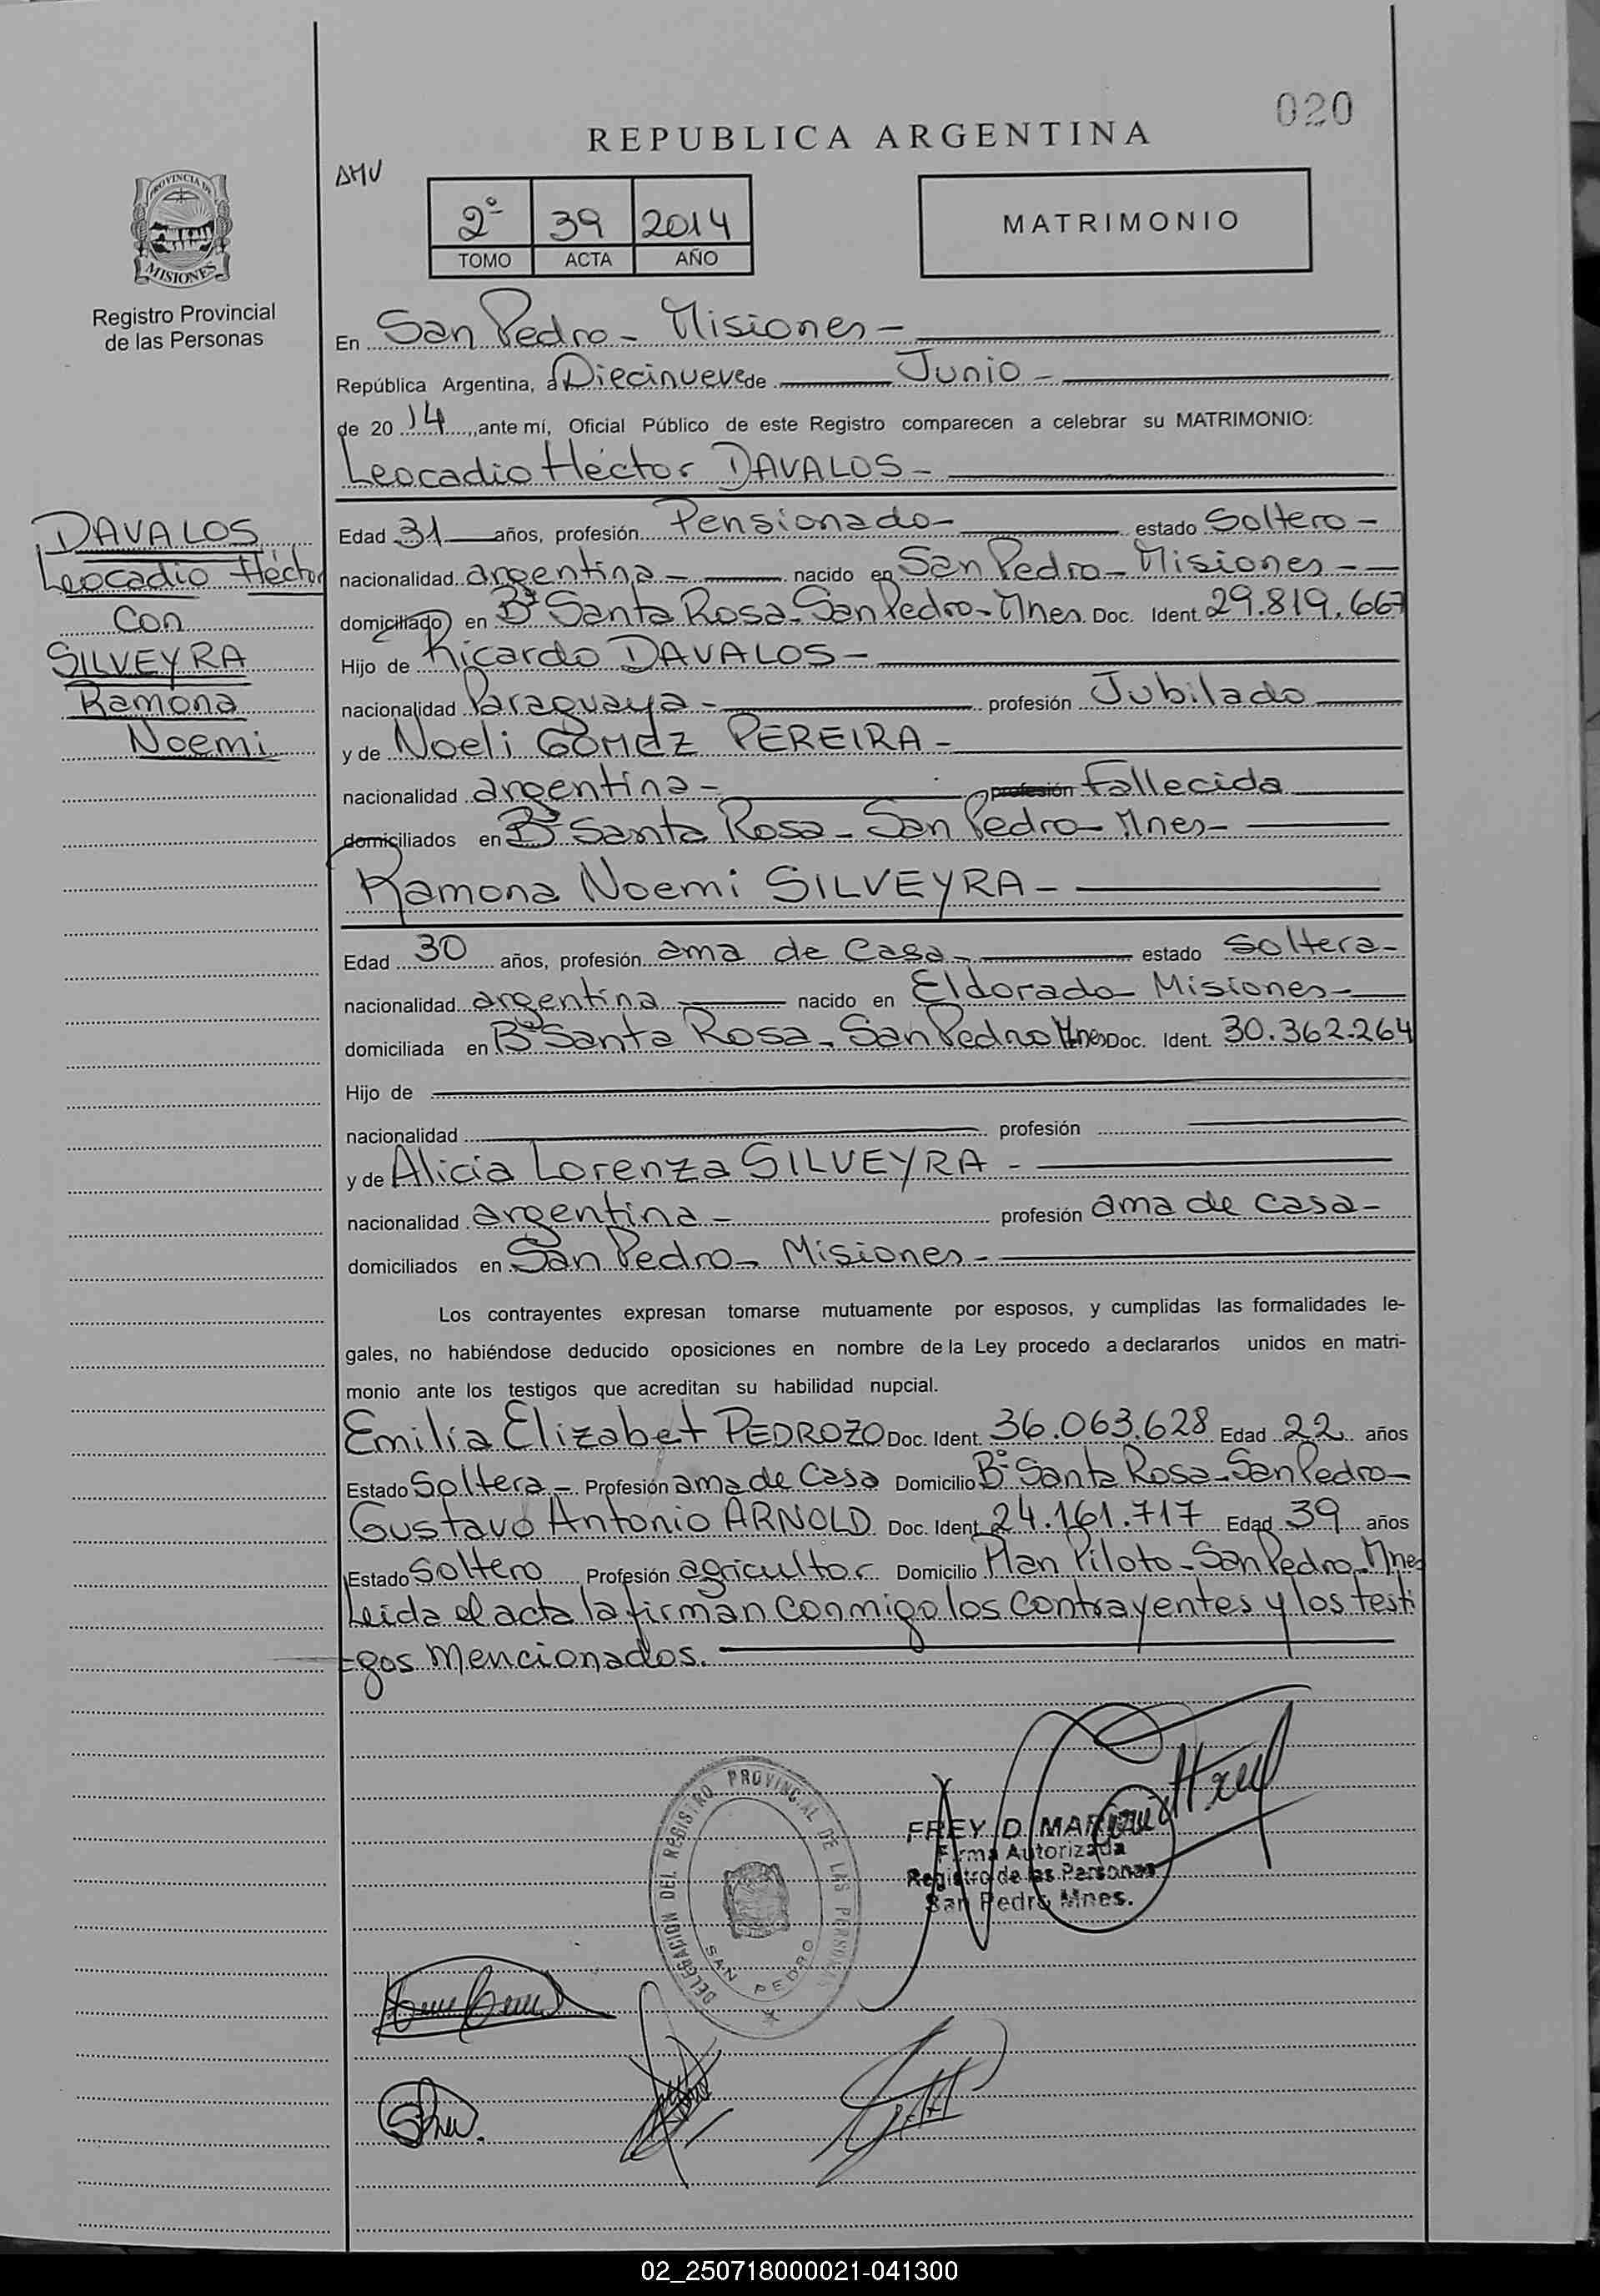 020
REPUBLICA ARGENTINA
AMV
PROVINCIA DE
MISIONES
Registro Provincial
de las Personas
2º 39 2014
TOMO ACTA AÑO
MATRIMONIO
En San Pedro - Misiones -
República Argentina, a Diecinueve de Junio -
de 20 14, ante mí, Oficial Público de este Registro comparecen a celebrar su MATRIMONIO:
Leocadio Héctor DAVALOS -
DAVALOS
Leocadio Héctor
Con
SILVEYRA
Ramona
Noemi
Edad 31 años, profesión Pensionado - estado Soltero -
nacionalidad argentina - nacido en San Pedro - Misiones -
domiciliado en Bº Santa Rosa - San Pedro - Mnes. Doc. Ident. 29.819.667
Hijo de Ricardo DAVALOS -
nacionalidad Paraguaya - profesión Jubilado
y de Noeli GOMEZ PEREIRA -
nacionalidad argentina - profesión Fallecida
domiciliados en Bº Santa Rosa - San Pedro - Mnes -
Ramona Noemi SILVEYRA -
Edad 30 años, profesión ama de Casa - estado Soltera -
nacionalidad argentina nacido en Eldorado - Misiones -
domiciliada en Bº Santa Rosa - San Pedro Mnes Doc. Ident. 30.362.264
Hijo de
nacionalidad profesión
y de Alicia Lorenza SILVEYRA -
nacionalidad argentina - profesión ama de casa -
domiciliados en San Pedro - Misiones -
Los contrayentes expresan tomarse mutuamente por esposos, y cumplidas las formalidades le-
gales, no habiéndose deducido oposiciones en nombre de la Ley procedo a declararlos unidos en matri-
monio ante los testigos que acreditan su habilidad nupcial.
Emilia Elizabet PEDROZO Doc. Ident. 36.063.628 Edad 22 años
Estado Soltera - Profesión ama de Casa Domicilio Bº Santa Rosa - San Pedro -
Gustavo Antonio ARNOLD Doc. Ident. 24.161.717 Edad 39 años
Estado Soltero Profesión agricultor Domicilio Plan Piloto - San Pedro - Mnes
Leida el acta la firman conmigo los contrayentes y los testi
-gos mencionados.
DELEGACION DEL REGISTRO PROVINCIAL DE LAS PERSONAS
SAN PEDRO
FREY D.
Firma Autorizada
Registro de las Personas
San Pedro Mnes.
02_250718000021-041300